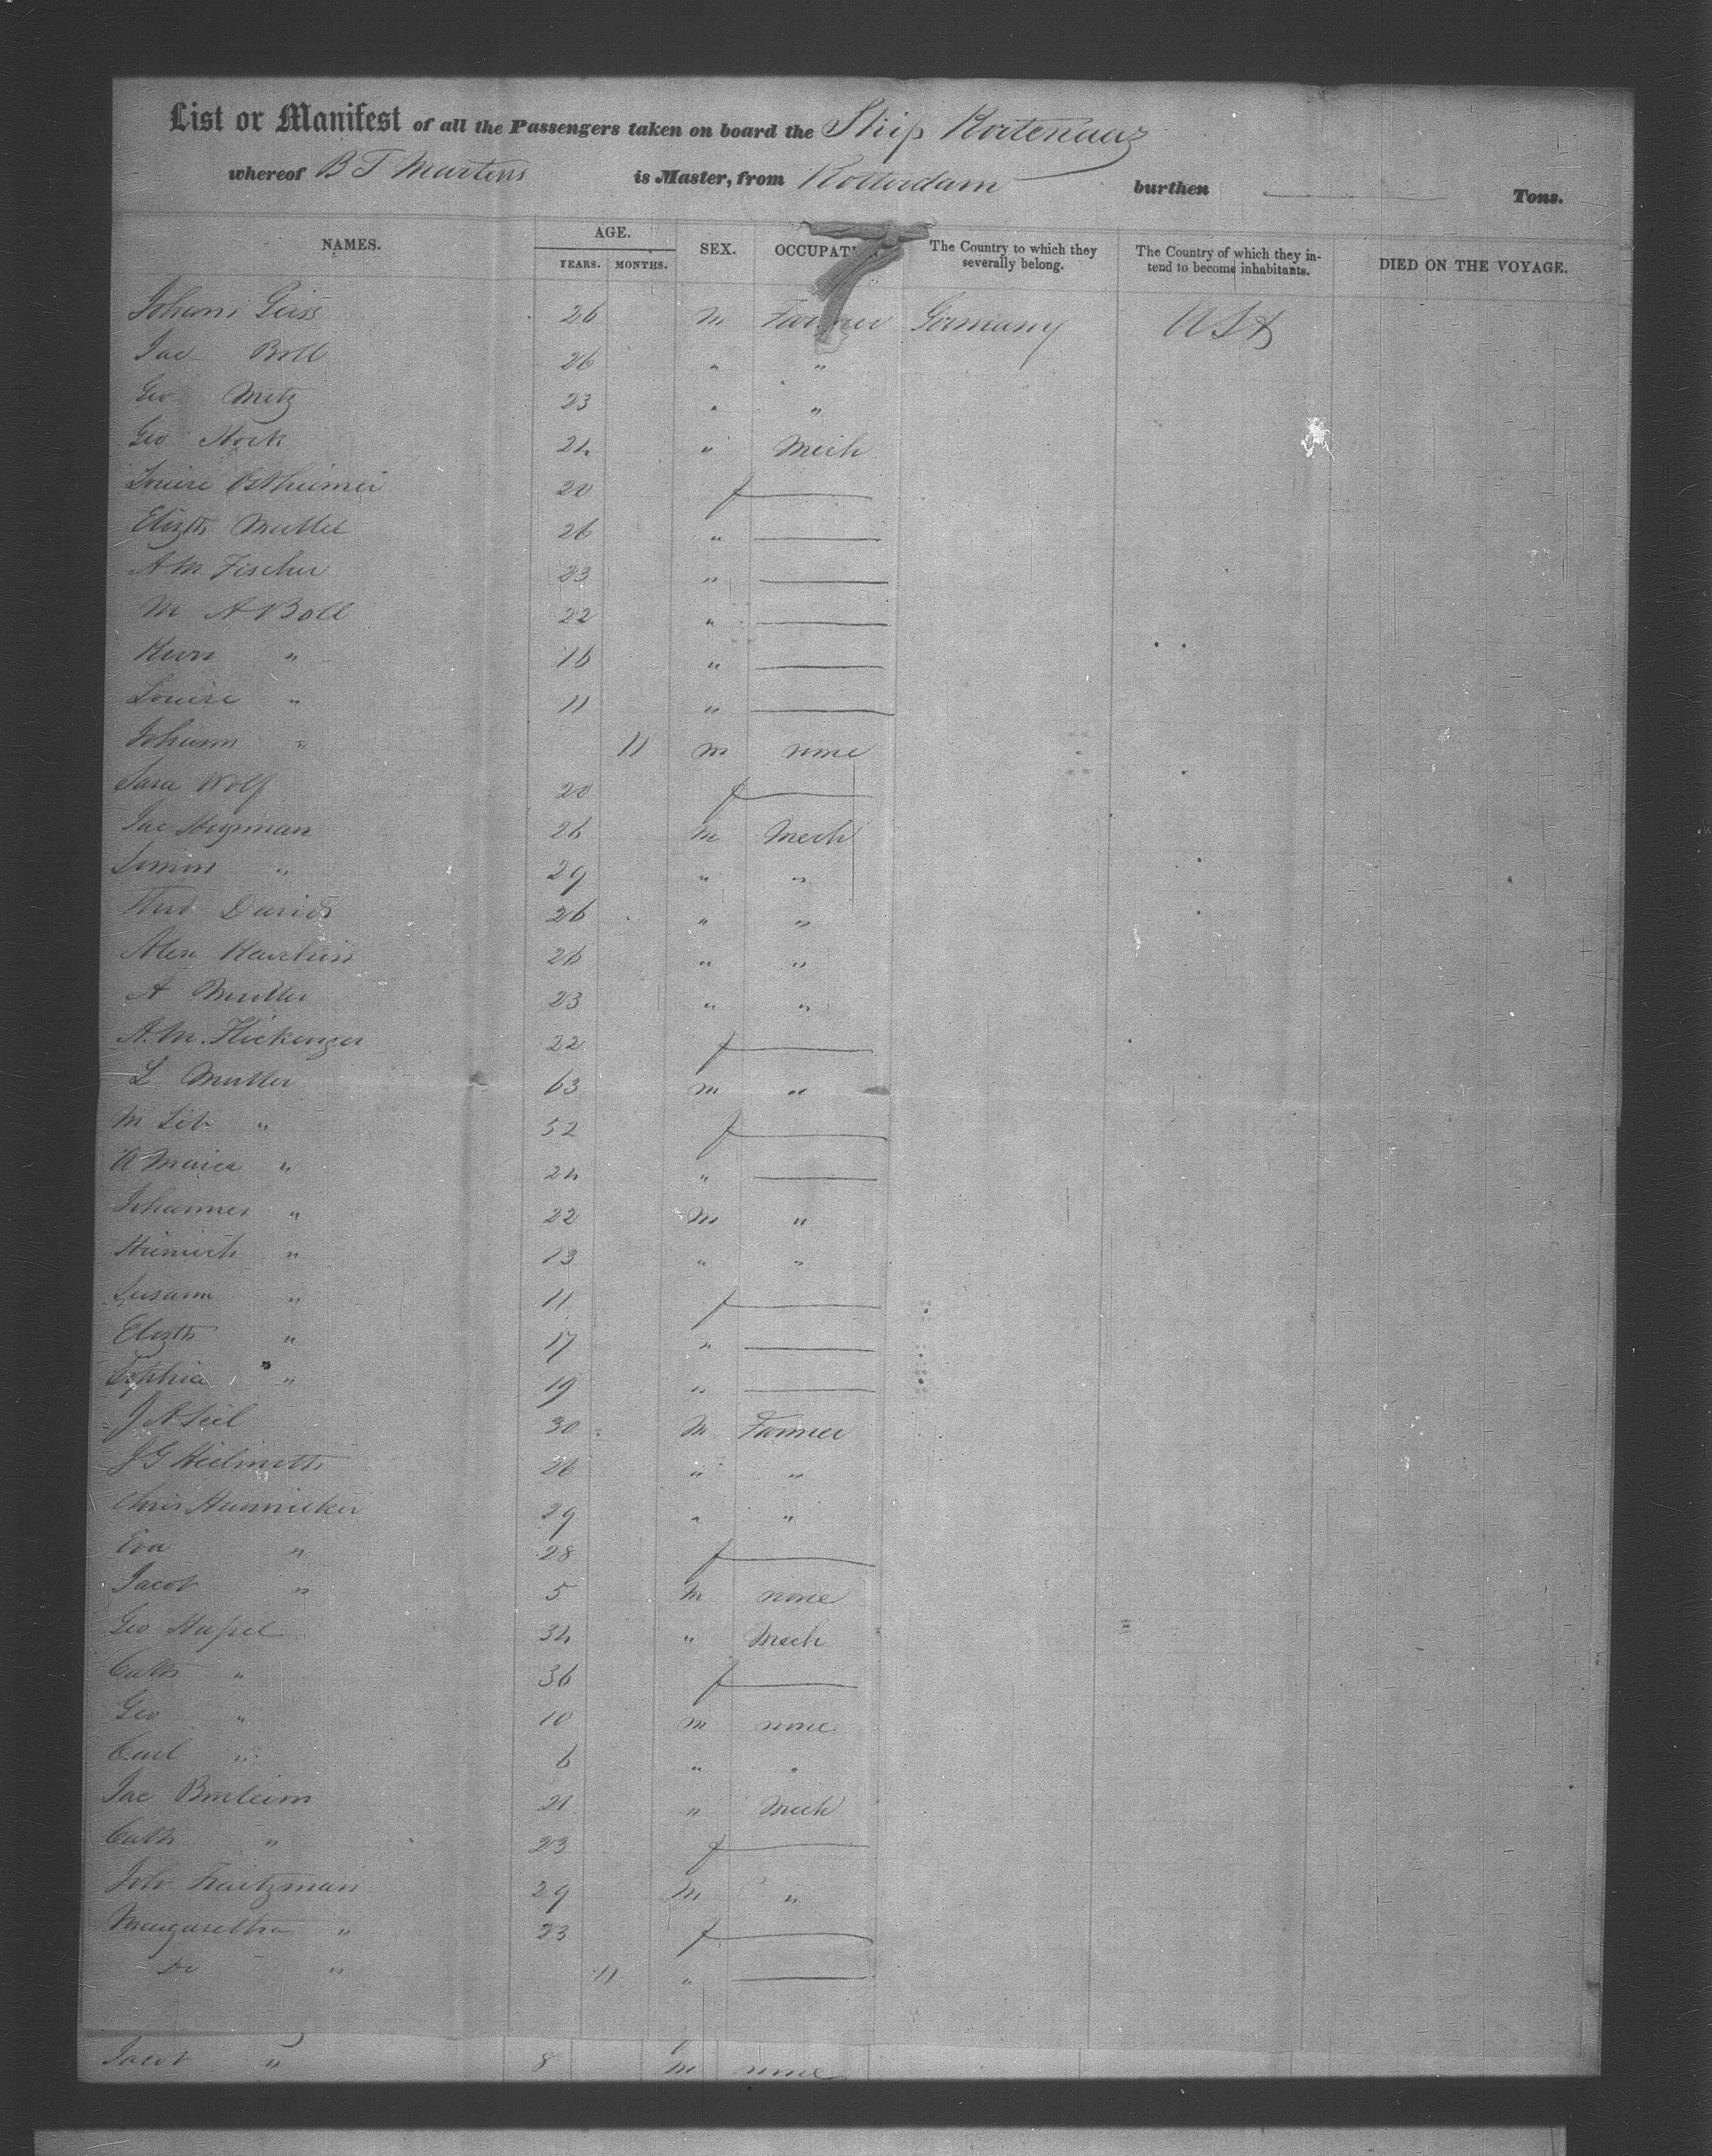 List or Manifest of all the Passengers taken on board the Ship Kortenaar
whereof B T Martens is Master, from Rotterdam burthen Tons.
NAMES. AGE. YEARS. MONTHS. SEX. OCCUPAT The Country to which they severally belong. The Country of which they intend to become inhabitants. DIED ON THE VOYAGE.
Johann Geiss 26 m Farmer Germany USA
Jac Boll 26 " "
Geo Metz 23 " "
Geo Stock 24 " Mech
Louise Ostheimer 20 f
Elizth Muller 26 "
A M Fischer 23 "
M A Boll 22 "
" 16 "
Louise " 11 "
Johann " 11 m none
Sara Wolf 20 f
Jac Heyman 26 m Mech
Simon " 29 " "
Theo Davids 26 " "
Alex 26 " "
A Muller 23 " "
A. M. Flickenger 22 f
L Muller 63 m "
M Lib " 52 f
A Maria " 24 "
Johannes " 22 m "
Heinrich " 13 " "
Susann " 11 f
Elizth " 17 "
Sophia " 19 "
J A Seil 30 m Farmer
J G 26 " "
Chris Hunnicker 29 " "
Eva " 28 f
Jacob " 5 m none
Geo 34 " Mech
Cath " 36 f
Geo " 10 m none
Carl " 6 " "
Jac 21 " Mech
Cath " 23 f
Joh 29 m "
Margaretha " 23 f
Do " 11 "
Jacob " 8 m none